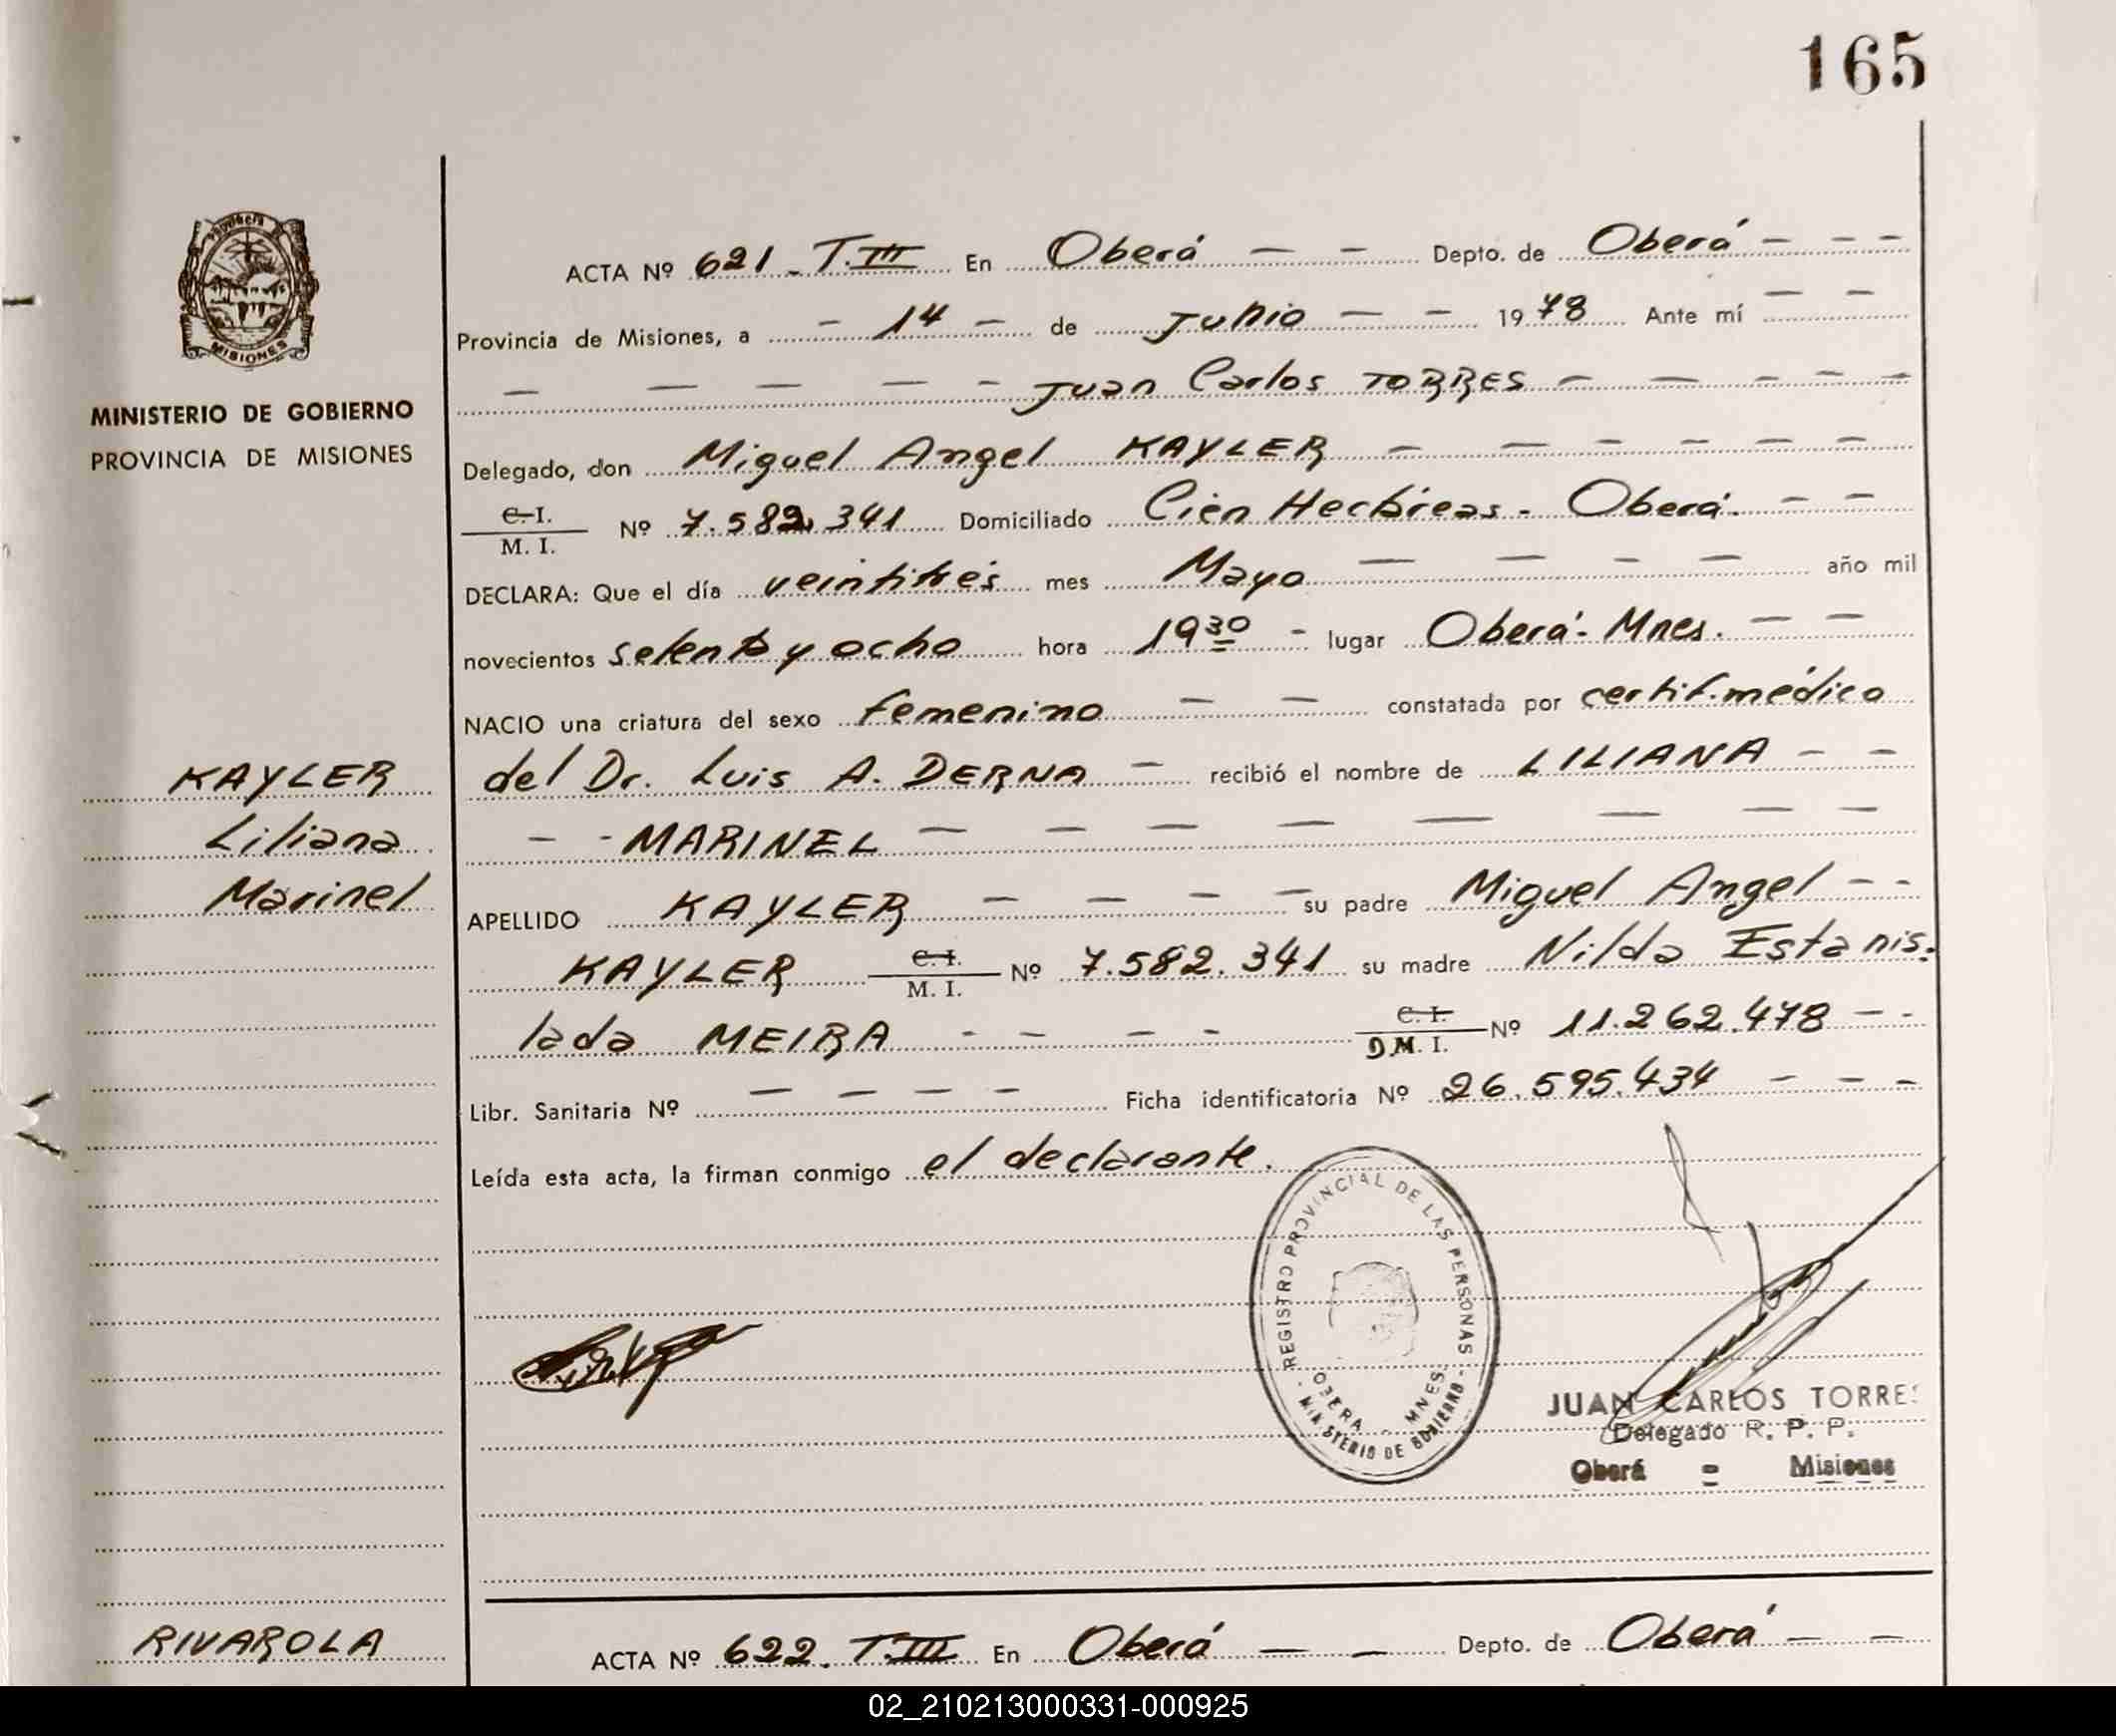 165
PROVINCIA
MISIONES
MINISTERIO DE GOBIERNO
PROVINCIA DE MISIONES
ACTA Nº 621 - T.III En Oberá — — Depto. de Oberá — — —
Provincia de Misiones, a — 14 — de Junio — — 1978 Ante mí — —
— — — — — Juan Carlos TORRES — — — — —
Delegado, don Miguel Angel KAYLER — — — — — —
C.I.
M. I.
Nº 7.582.341 Domiciliado Cien Hectáreas - Oberá. — —
DECLARA: Que el día veintitrés mes Mayo — — — — año mil
novecientos setenta y ocho hora 19 30 - lugar Oberá - Mnes. — —
NACIO una criatura del sexo femenino — — constatada por certif. médico
del Dr. Luis A. DERNA — recibió el nombre de LILIANA — —
— - MARINEL — — — — — — — —
APELLIDO KAYLER — — — — su padre Miguel Angel — -
KAYLER C.I.
M. I.
Nº 7.582.341 su madre Nilda Estanis-
lada MEIRA - - — - C.I.
D.M. I.
Nº 11.262.478 — -
Libr. Sanitaria Nº — — — — Ficha identificatoria Nº 26.595.434 — — —
Leída esta acta, la firman conmigo el declarante.
KAYLER
Liliana
Marinel
REGISTRO PROVINCIAL DE LAS PERSONAS
OBERA - MNES.
- MINISTERIO DE GOBIERNO -
JUAN CARLOS TORRES
Delegado R. P. P.
Oberá - Misiones
RIVAROLA
ACTA Nº 622. T.III En Oberá — — Depto. de Oberá — —
02_210213000331-000925